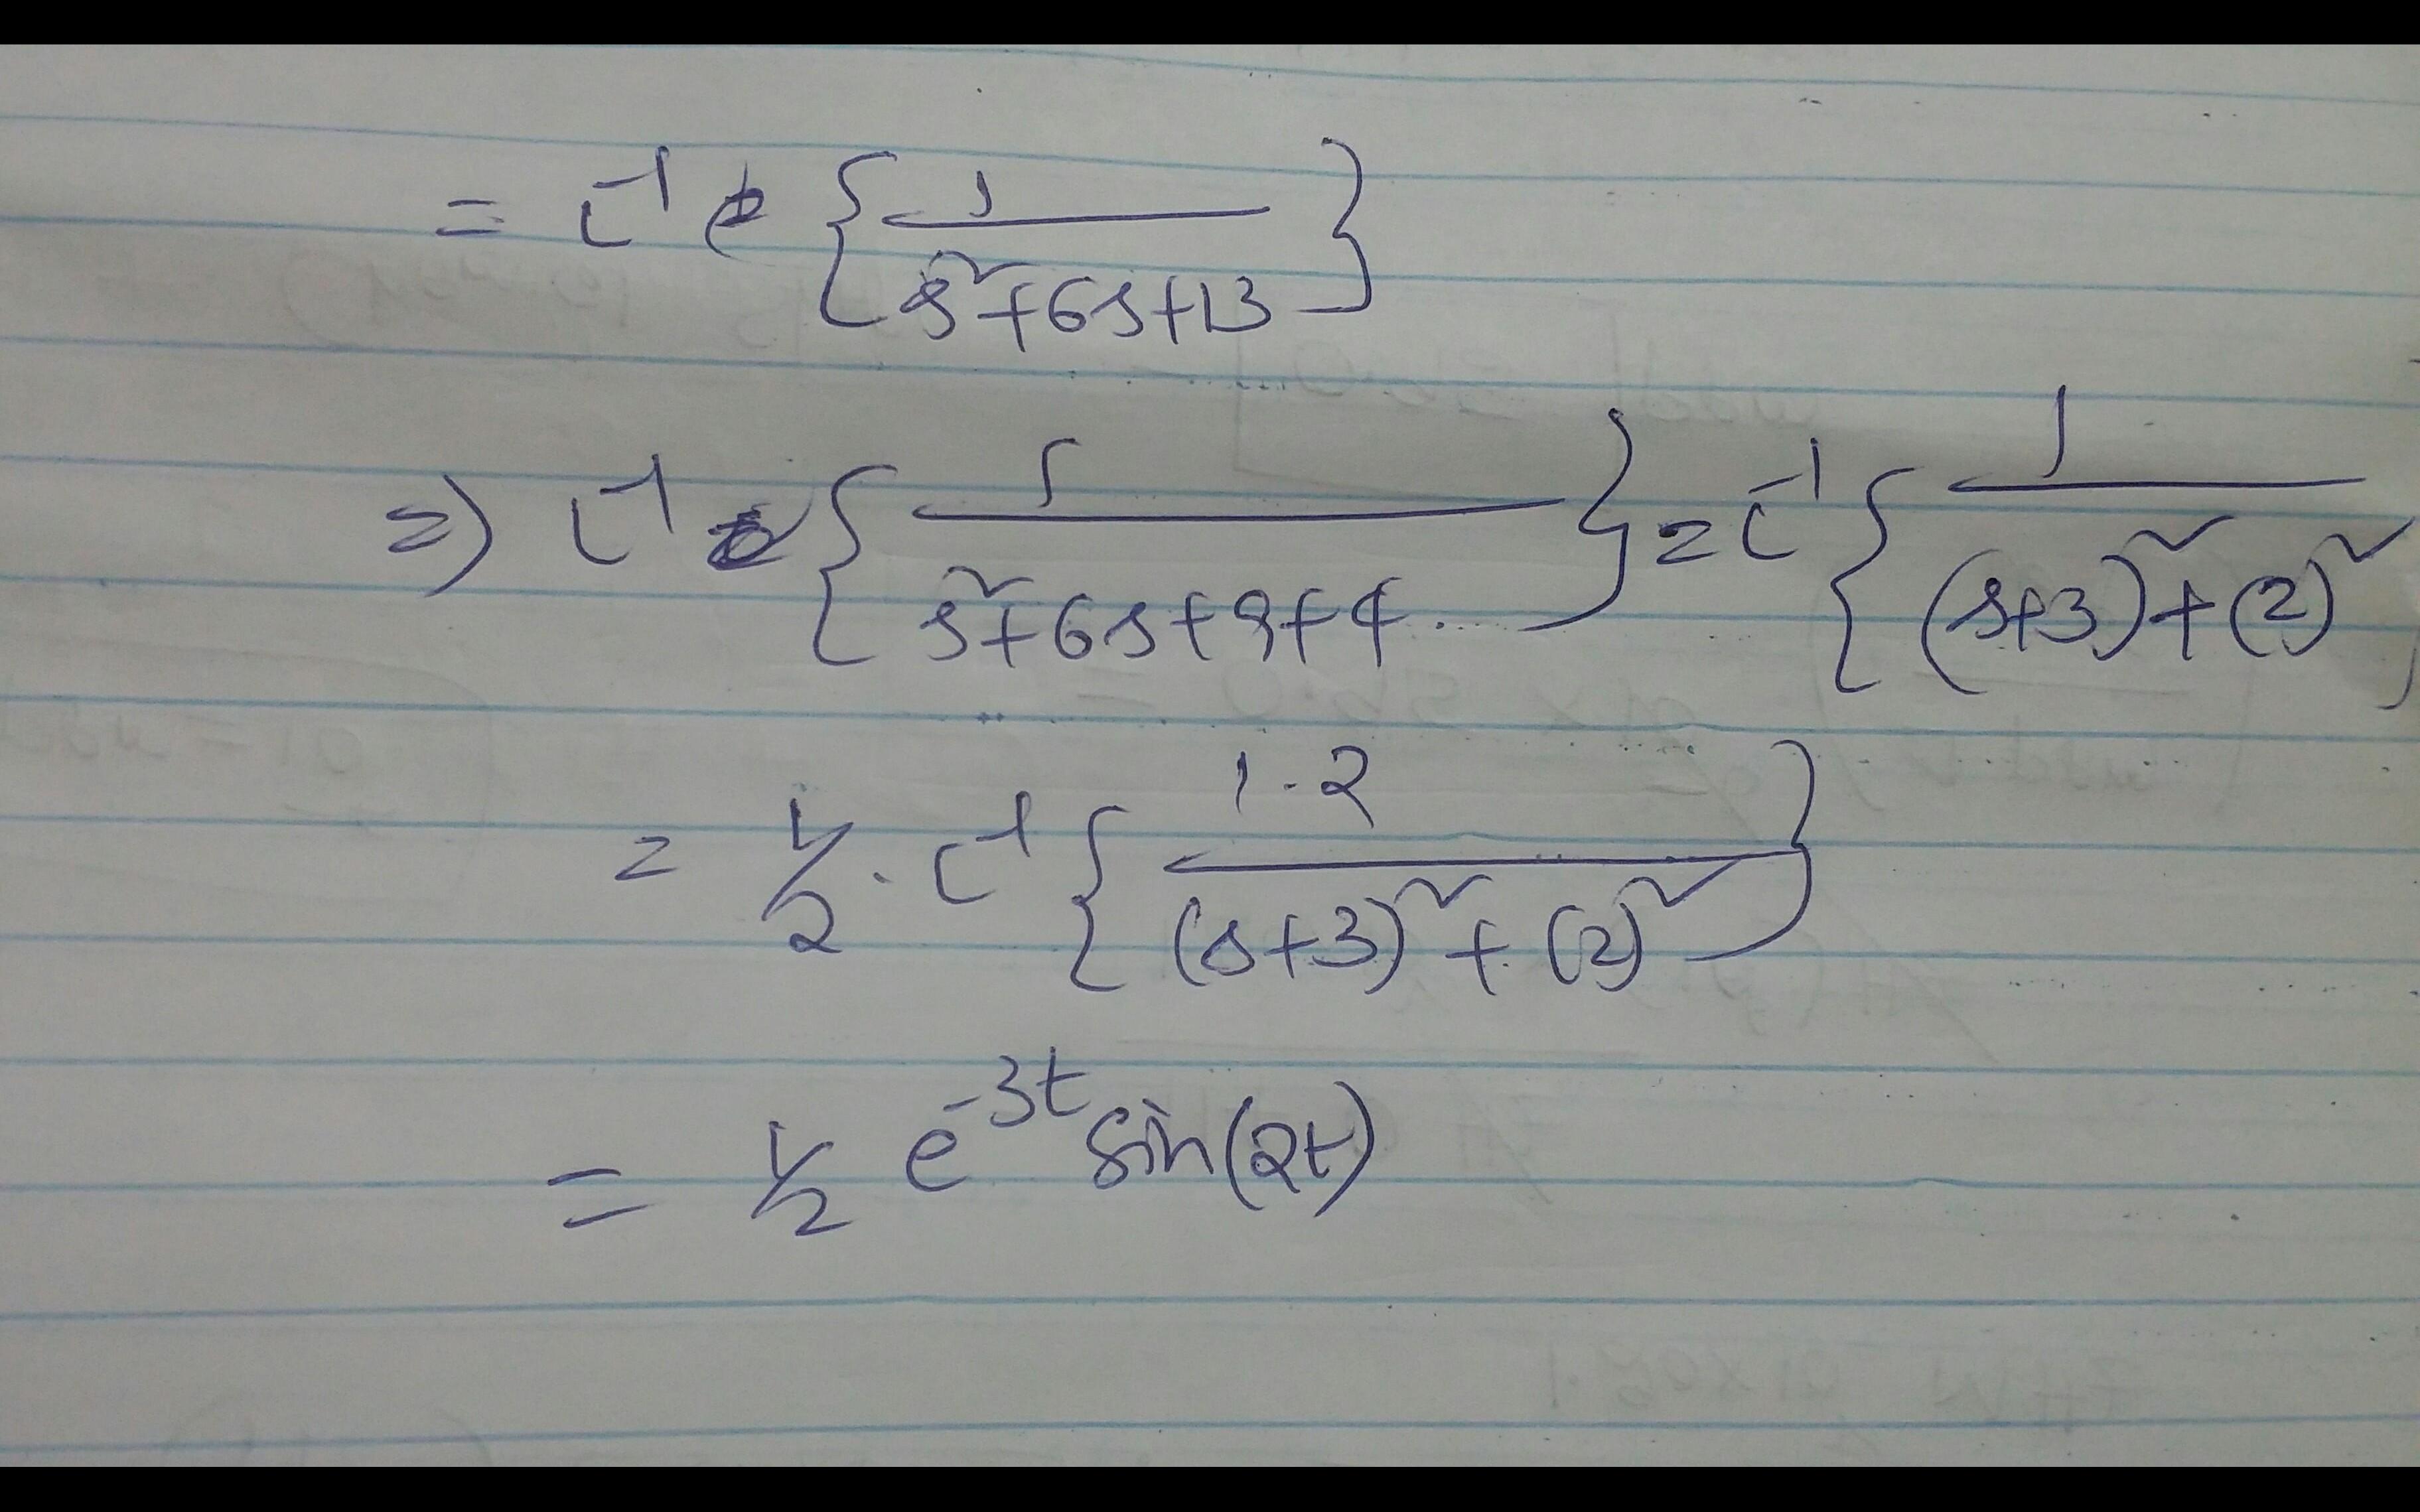 = L⁻¹ { 1 / s²+6s+13 }
=> L⁻¹ { 1 / s²+6s+9+4 } = L⁻¹ { 1 / (s+3)²+(2)² }
= 1/2 . L⁻¹ { 1.2 / (s+3)²+(2)² }
= 1/2 e⁻³ᵗ sin(2t)